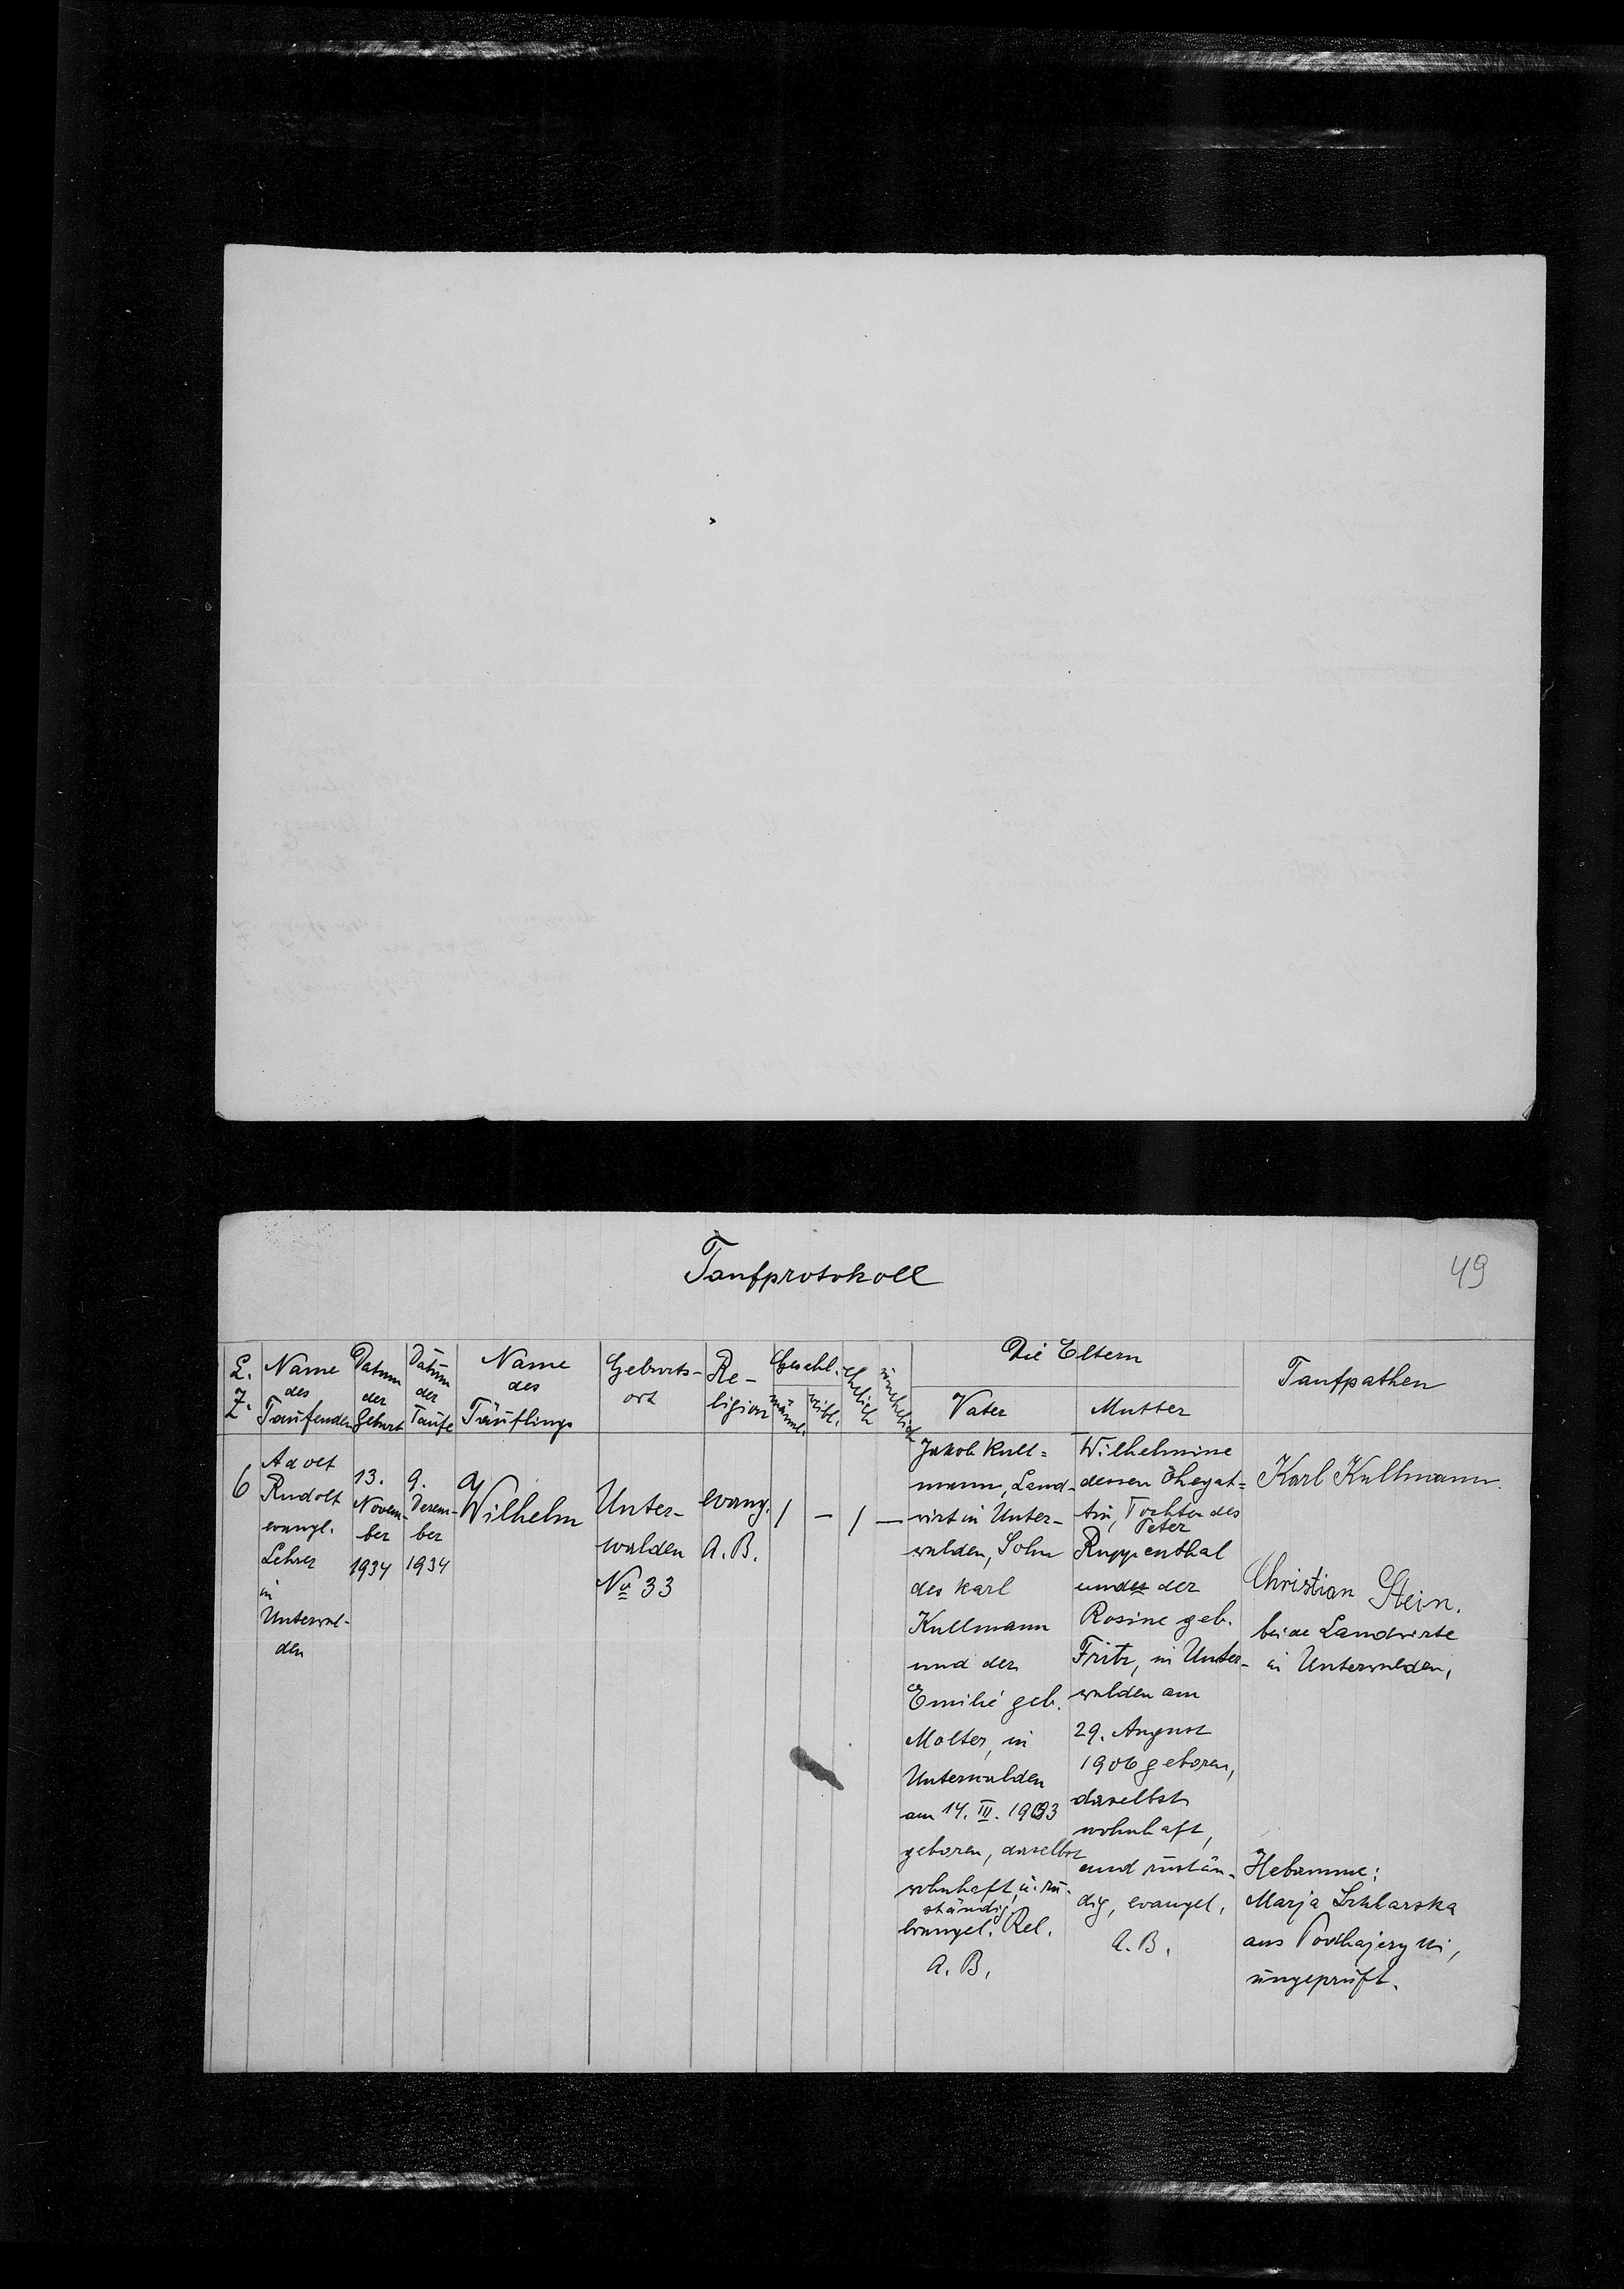 Taufprotokoll
49
L. Z.
Name des Taufenden
Datum der Geburt
Datum der Taufe
Name des Täuflings
Geburts-
ort
Re-
ligion
Geschl.
männl.
weibl.
ehelich
unehelich
Die Eltern
Vater
Mutter
Taufpathen
6
Adolf
Rudolf
evangl.
Lehrer
in
Unterwal-
den
13.
Novem-
ber
1934
9.
Dezem-
ber
1934
Wilhelm
Unter-
walden
No 33
evang.
A. B.
/
—
/
—
Jakob Kull=
mann, Land-
wirt in Unter-
walden, Sohn
des Karl
Kullmann
und der
Emilie geb.
Molter, in
Unterwalden
am 14. III.
geboren, daselbst
wohnhaft u. zu-
ständig
evangel. Rel.
A. B.
Wilhelmine
dessen Ehegat=
tin, Tochter des
Peter
Ruppenthal
und der
Rosine geb.
Fritz, in Unter-
walden am
29. August
1906 geboren,
daselbst
wohnhaft,
und zustän-
dig, evangel.
A. B.
Karl Kullmann.
Christian Stein.
beide Landwirte
in Unterwalden,
Hebamme:
Marja Szklarska
aus
ungeprüft.